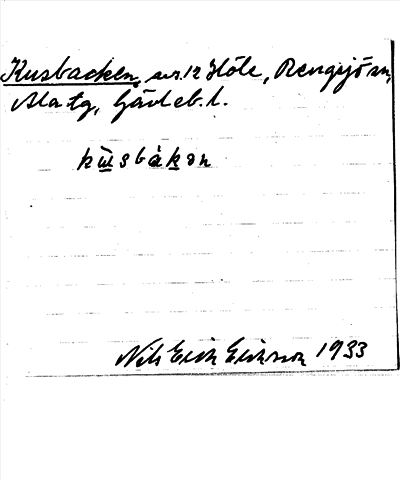 Kusbacken, nr. 12 Höle, Rengsjö sn,
Ala tg, Gävleb. l.
kùsbàkən
Nils Erik Eriksson 1933